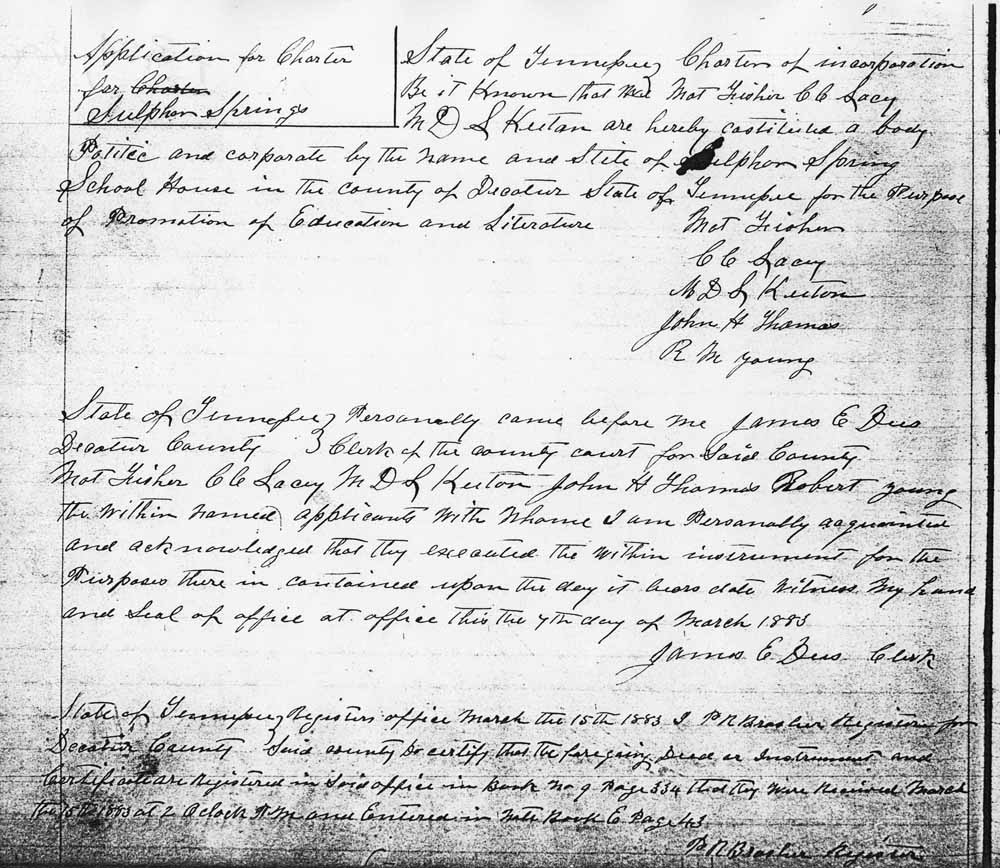 Application for Charter
for Charter
Sulphor Springs
State of Tennessee Charter of incorporation
Be it Known that We Mat Fisher C C Lacy
M D L Keeton are hereby costituted a body
Politic and corporate by the name and Stile of Sulphor Spring
School House in the county of Decatur State of Tennessee for the Purpose
of Promotion of Education and Literature
Mat Fisher
C C Lacey
M D L Keeton
John H Thomas
R M young
State of Tennessee Personally came before me James E
Decatur County Clerk of the county court for Said County
Mat Fisher C C Lacey M D L Keeton John H Thomas Robert young
the within named applicants with Whome I am Personally aaquainted
and acknowledged that they executed the within instrument for the
Purposes there in contained upon the day it bears date Witness My hand
and Seal of office at office this the 7th day of March 1883
James E Clerk
State of Tennessee Registers office March the 15th 1883 I P R Brasher Register for
Decatur County Said county Do certify that the foregoing Deed or Instrument and
Certificate are Registered in Said office in Book No 9 Page 334 that they were Received March
the 15th 1883 at 2 Oclock P.M and Entered in Note Book C Page 43
P R Brasher Register